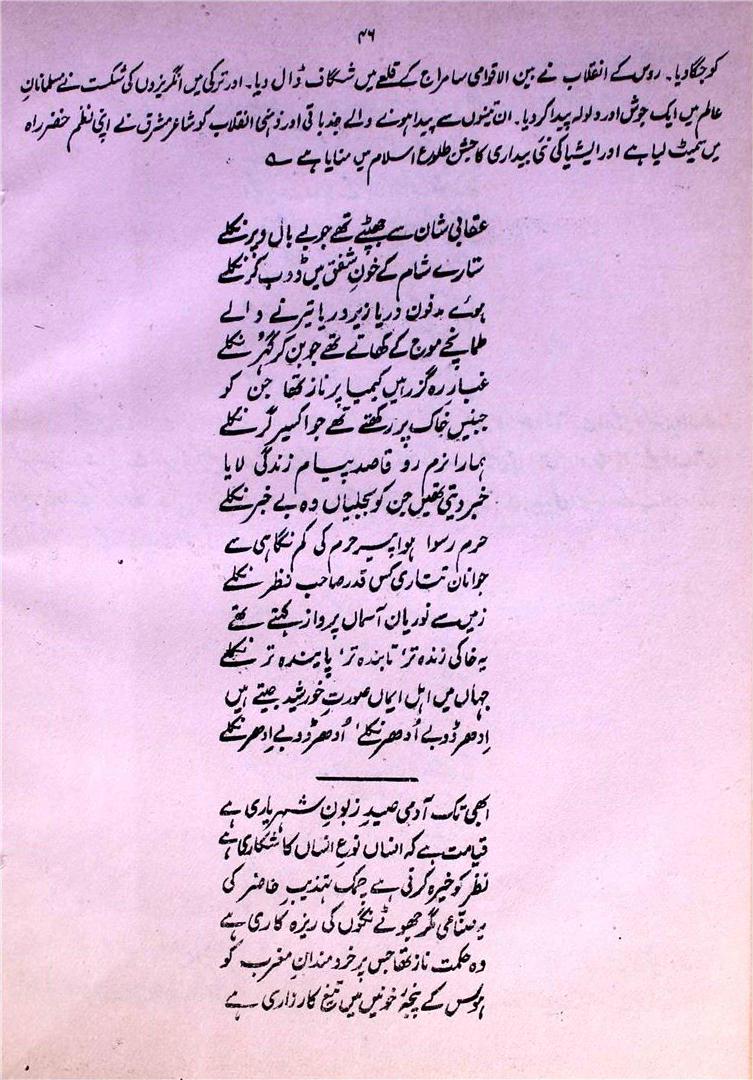 ۴۶
کو جگا دیا۔ روس کے انقلاب نے بین الاقوامی سامراج کے قلعے میں شگاف ڈال دیا۔ اور ترکی میں انگریزوں کی شکست نے مسلمانانِ
عالم میں ایک جوش اور ولولہ پیدا کر دیا۔ ان تینوں سے پیدا ہونے والے جذباتی اور ذہنی انقلاب کو شاعر مشرق نے اپنی نظم خضر راہ
میں سمیٹ لیا ہے اور ایشیا کی نئی بیداری کا جشن طلوع اسلام میں منایا ہے ؎
عقابی شان سے جھپٹے تھے جو بے بال و پر نکلے
ستارے شام کے خونِ شفق میں ڈوب کر نکلے
ہوئے مدفونِ دریا زیرِ دریا تیرنے والے
طمانچے موج کے کھاتے تھے جو بن کر گہر نکلے
غبارِ رہ گزر ہیں کیمیا پر ناز تھا جن کو
جبینیں خاک پر رکھتے تھے جو اکسیر گر نکلے
ہمارا نرم رو قاصد پیامِ زندگی لایا
خبر دیتی تھیں جن کو بجلیاں وہ بے خبر نکلے
حرم رسوا ہوا پیرِ حرم کی کم نگاہی سے
جوانانِ تتاری کس قدر صاحب نظر نکلے
زمیں سے نوریانِ آسماں پرواز کہتے تھے
یہ خاکی زندہ تر، تابندہ تر، پایندہ تر نکلے
جہاں میں اہل ایماں صورتِ خورشید جیتے ہیں
اِدھر ڈوبے اُدھر نکلے، اُدھر ڈوبے اِدھر نکلے
ابھی تک آدمی صیدِ زبونِ شہریاری ہے
قیامت ہے کہ انساں نوعِ انساں کا شکاری ہے
نظر کو خیرہ کرتی ہے چمک تہذیبِ حاضر کی
یہ صناعی مگر جھوٹے نگوں کی ریزہ کاری ہے
وہ حکمت ناز تھا جس پر خردمندانِ مغرب کو
ہوس کے پنجۂ خونیں میں تیغِ کارزاری ہے